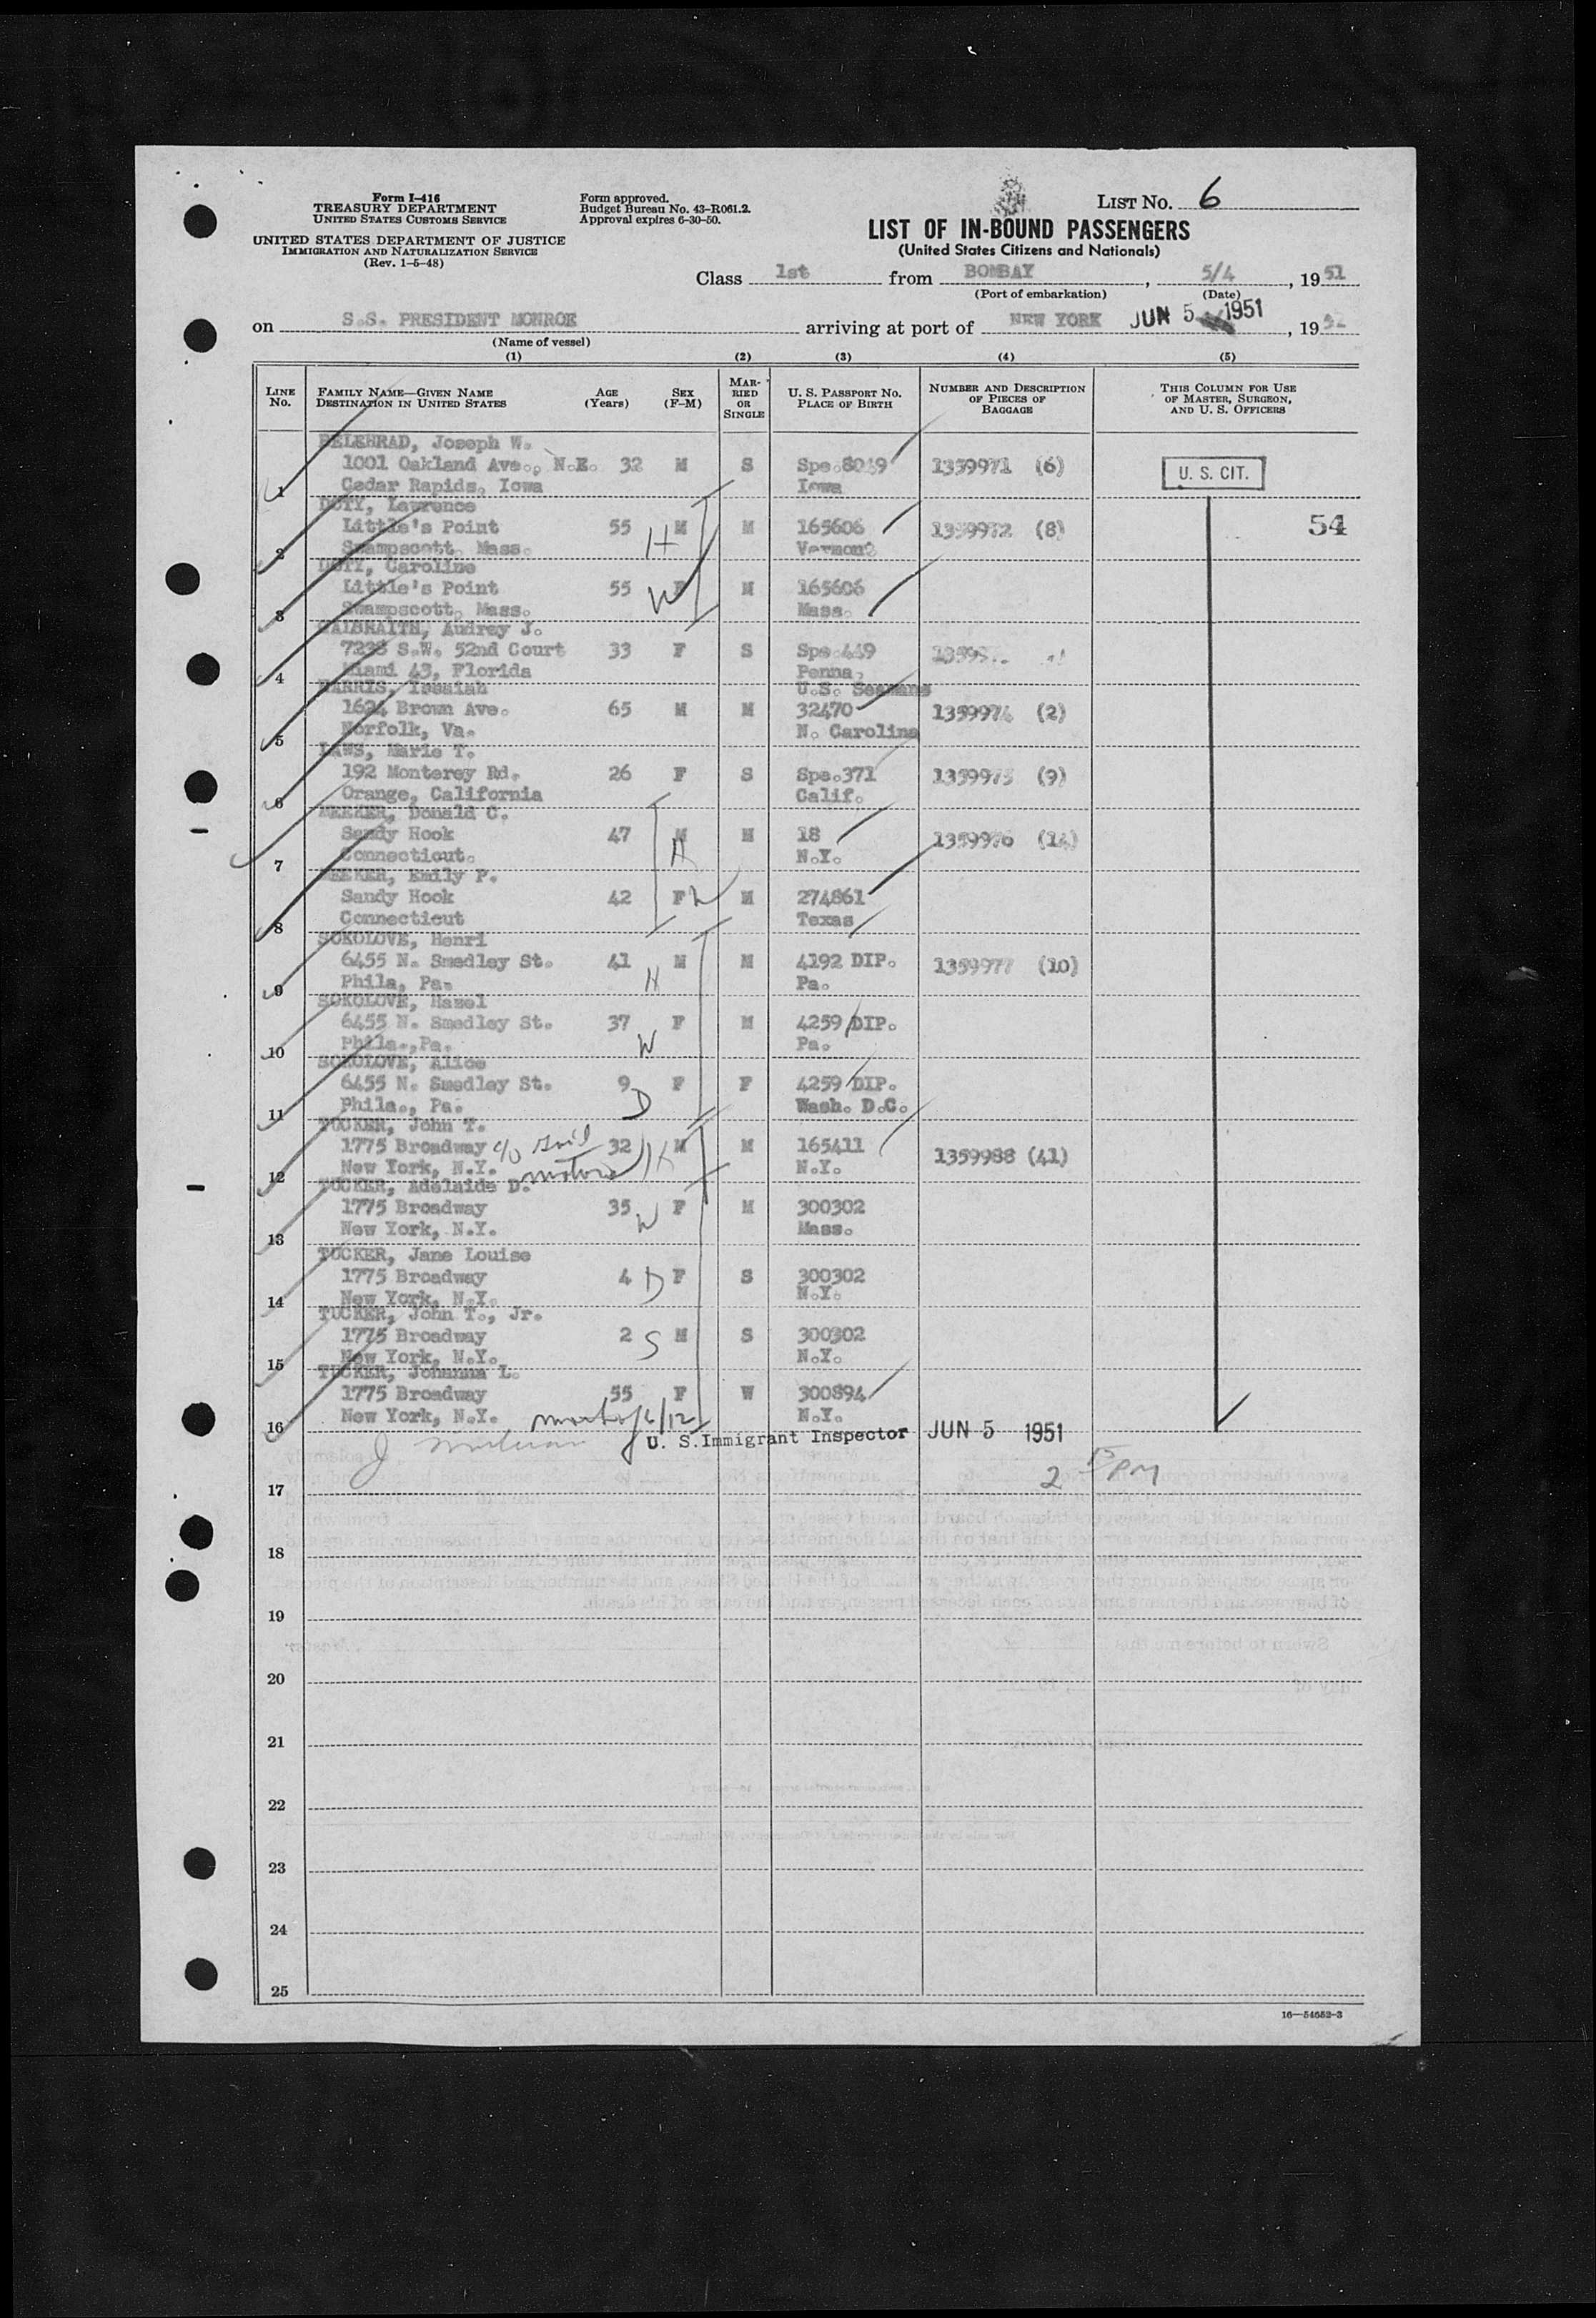 Form I-416
TREASURY DEPARTMENT
UNITED STATES CUSTOMS SERVICE
UNITED STATES DEPARTMENT OF JUSTICE
IMMIGRATION AND NATURALIZATION SERVICE
(Rev. 1-5-48)
Form approved.
Budget Bureau No. 43-R061.2.
Approval expires 6-30-50.
LIST NO. 6
LIST OF IN-BOUND PASSENGERS
(United States Citizens and Nationals)
Class 1st from BOMBAY, 5/4, 1951
(Port of embarkation) (Date)
on S.S. PRESIDENT MONROE arriving at port of NEW YORK JUN 5 1951, 19
(Name of vessel)
(1) (2) (3) (4) (5)
LINE NO. FAMILY NAME—GIVEN NAME DESTINATION IN UNITED STATES AGE (Years) SEX (F-M) MARRIED OR SINGLE U. S. PASSPORT NO. PLACE OF BIRTH NUMBER AND DESCRIPTION OF PIECES OF BAGGAGE THIS COLUMN FOR USE OF MASTER, SURGEON, AND U. S. OFFICERS
BELEHRAD, Joseph W.
1001 Oakland Ave., N.E. 32 M S Spe.8049 1359971 (6) U. S. CIT.
1 Cedar Rapids, Iowa Iowa
DOTY, Lawrence
Little's Point 55 H M M 165606 1359972 (8) 54
2 Swampscott, Mass. Vermont
DOTY, Caroline
Little's Point 55 W F M 165606
3 Swampscott, Mass. Mass.
GALBRAITH, Audrey J.
7238 S.W. 52nd Court 33 F S Spe.449
4 Miami 43, Florida Penna.
HARRIS, Issaiah U.S. Seamans
1624 Brown Ave. 65 M M 32470 1359974 (2)
5 Norfolk, Va. N. Carolina
LAWS, Marie T.
192 Monterey Rd. 26 F S Spe.371 1359975 (9)
6 Orange, California Calif.
MEEKER, Donald C.
Sandy Hook 47 M H M 18 1359976 (14)
7 Connecticut. N.Y.
MEEKER, Emily P.
Sandy Hook 42 F W M 274861
8 Connecticut Texas
SOKOLOVE, Henri
6455 N. Smedley St. 41 H M M 4192 DIP. 1359977 (10)
9 Phila, Pa. Pa.
SOKOLOVE, Hazel
6455 N. Smedley St. 37 W F M 4259 DIP.
10 Phila.,Pa. Pa.
SOKOLOVE, Alice
6455 N. Smedley St. 9 D F F 4259 DIP.
11 Phila., Pa. Wash. D.C.
TUCKER, John T.
1775 Broadway c/o 32 H M M 165411 1359988 (41)
12 New York, N.Y. motors N.Y.
TUCKER, Adelaide D.
1775 Broadway 35 W F M 300302
13 New York, N.Y. Mass.
TUCKER, Jane Louise
1775 Broadway 4 D F S 300302
14 New York, N.Y. N.Y.
TUCKER, John T., Jr.
1775 Broadway 2 S M S 300302
15 New York, N.Y. N.Y.
TUCKER, Johanna L.
1775 Broadway 55 F W 300894
16 New York, N.Y. N.Y.
U. S. Immigrant Inspector JUN 5 1951
2 15 PM
17
18
19
20
21
22
23
24
25
16—54652-3